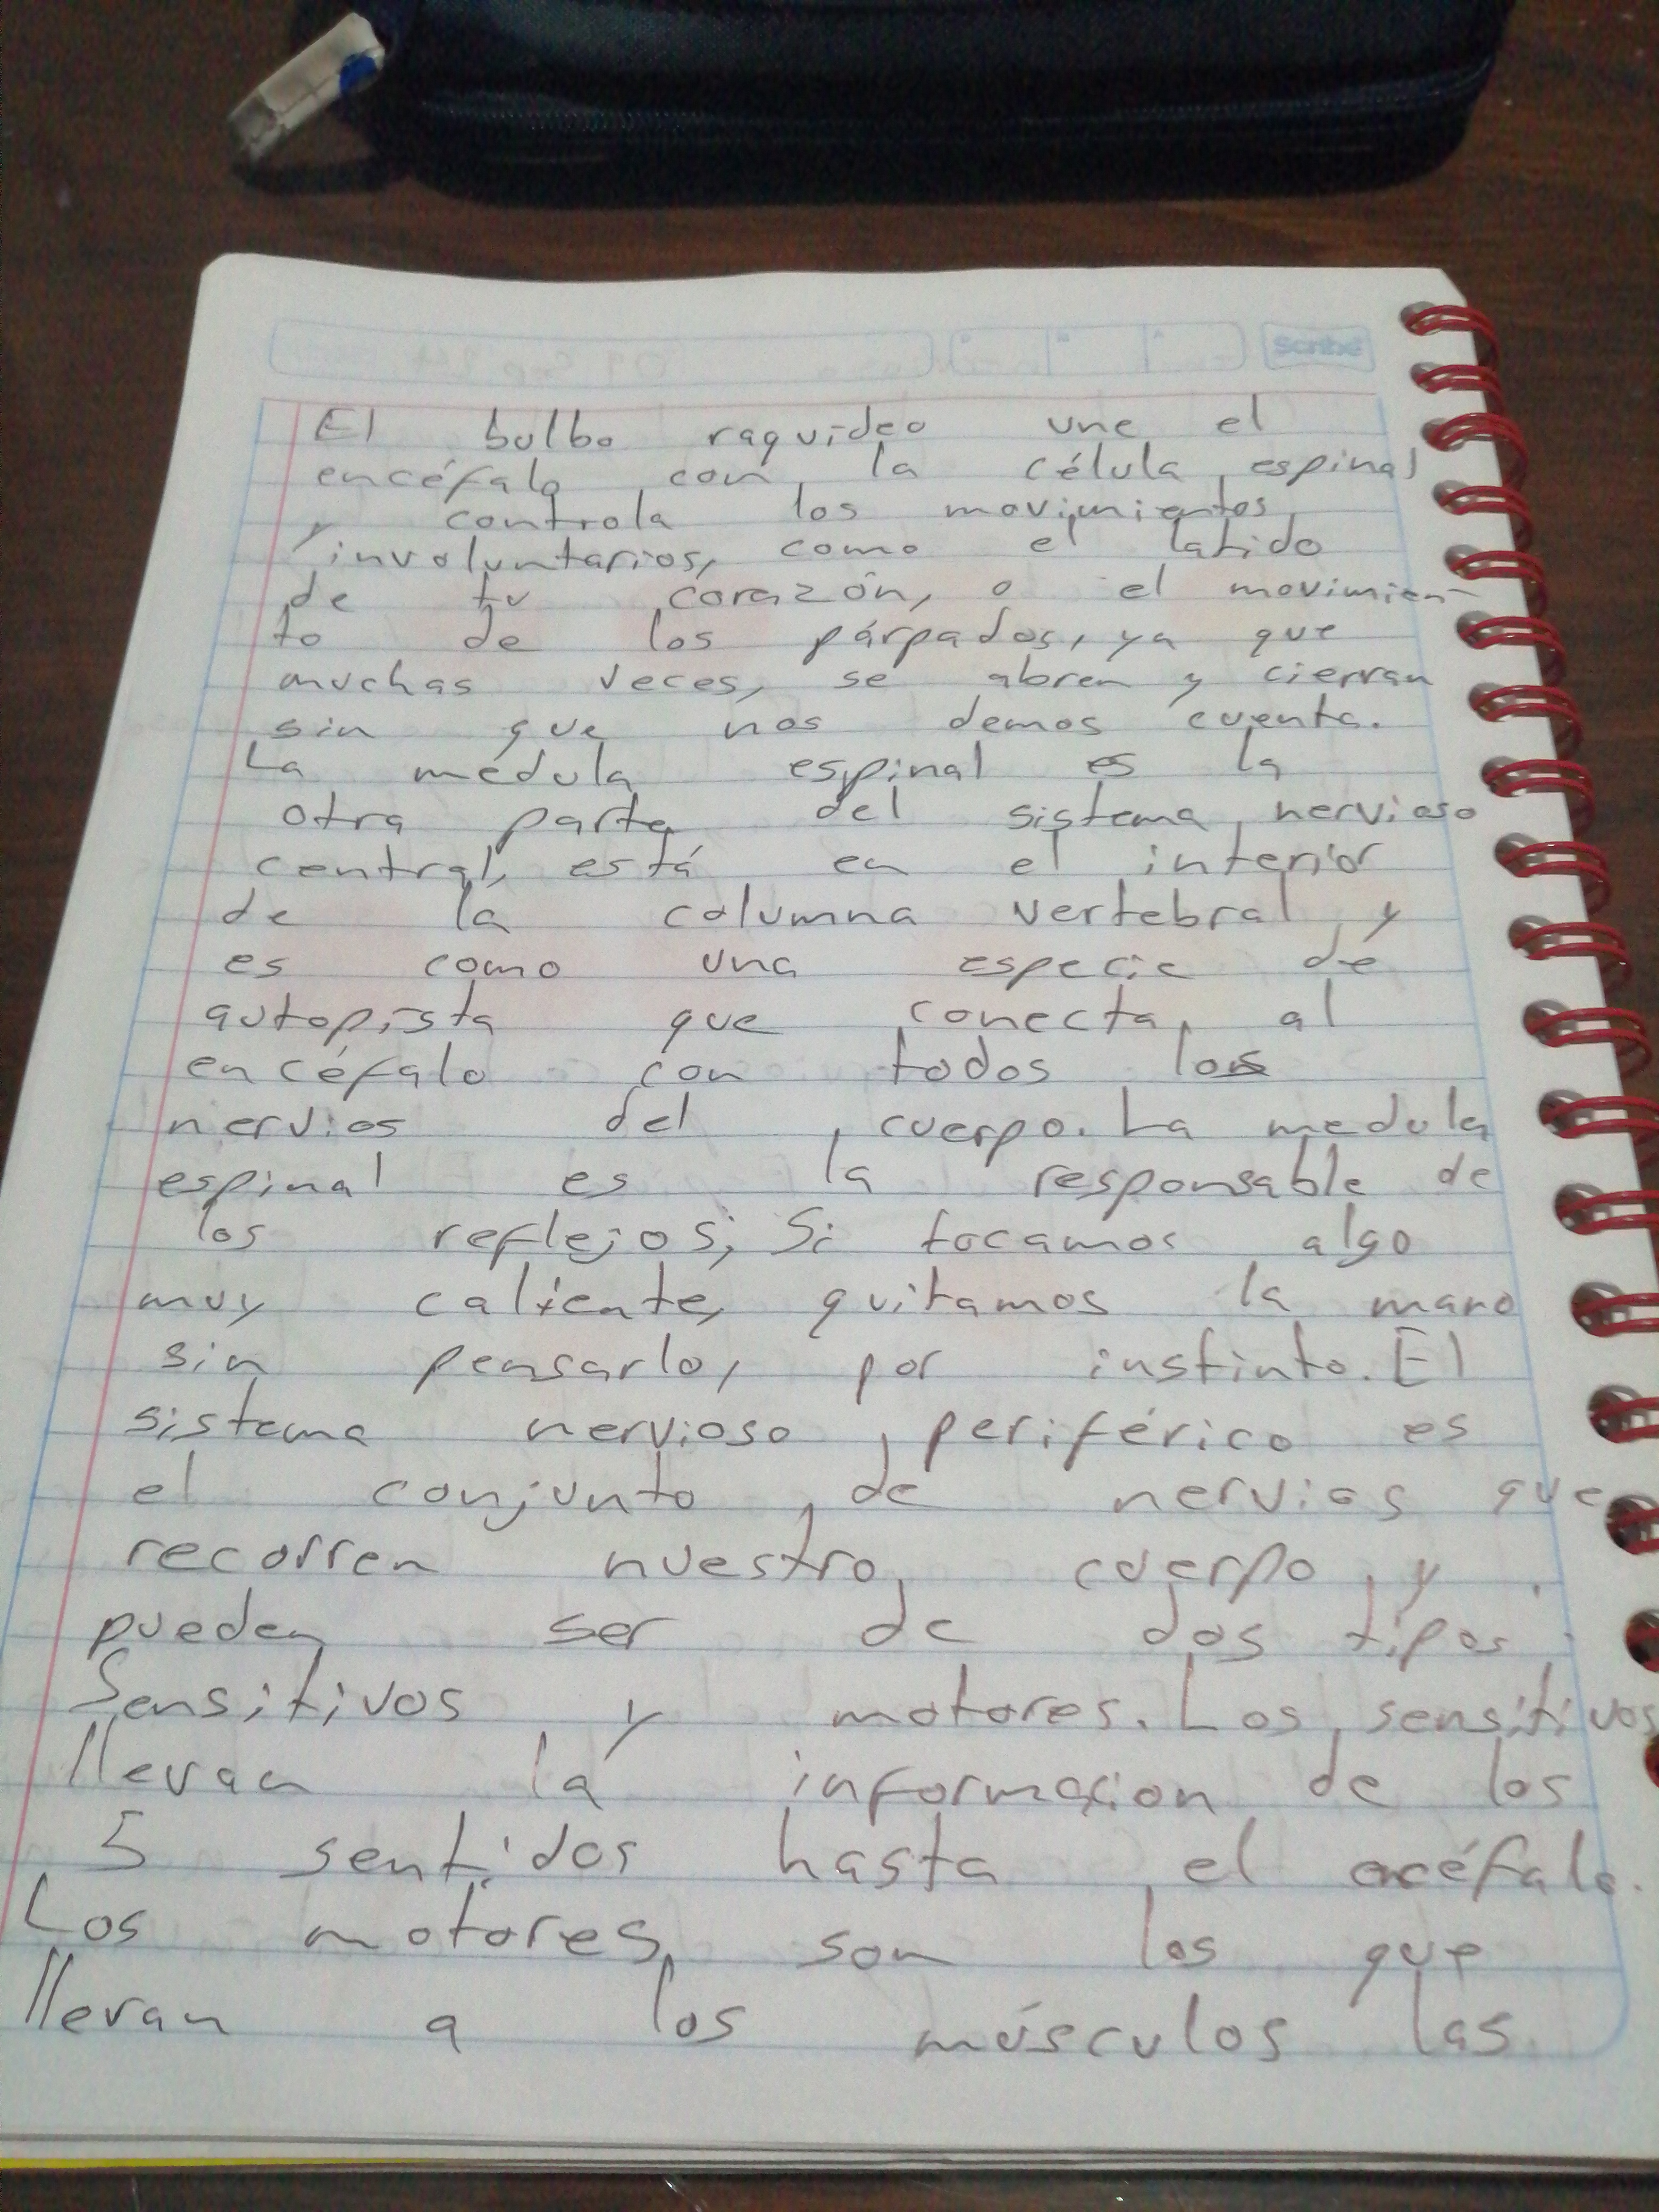 scribe
El bulbo raquideo une el
encéfalo con la célula espinal
y controla los movimientos
involuntarios, como el latido
de tu corazón, o el movimien-
to de los párpados, ya que
muchas veces, se abren y cierran
sin que nos demos cuenta.
La médula espinal es la
otra parte del sistema nervioso
central, está en el interior
de la columna vertebral y
es como una especie de
autopista que conecta al
encéfalo con todos los
nervios del cuerpo. La medula
espinal es la responsable de
los reflejos; Si tocamos algo
muy caliente, quitamos la mano
sin pensarlo, por instinto. El
sistema nervioso periférico es
el conjunto de nervios que
recorren nuestro cuerpo y
pueden ser de dos tipos:
Sensitivos y motores. Los sensitivos
llevan la informacion de los
5 sentidos hasta el
Los motores son los que
llevan a los músculos las